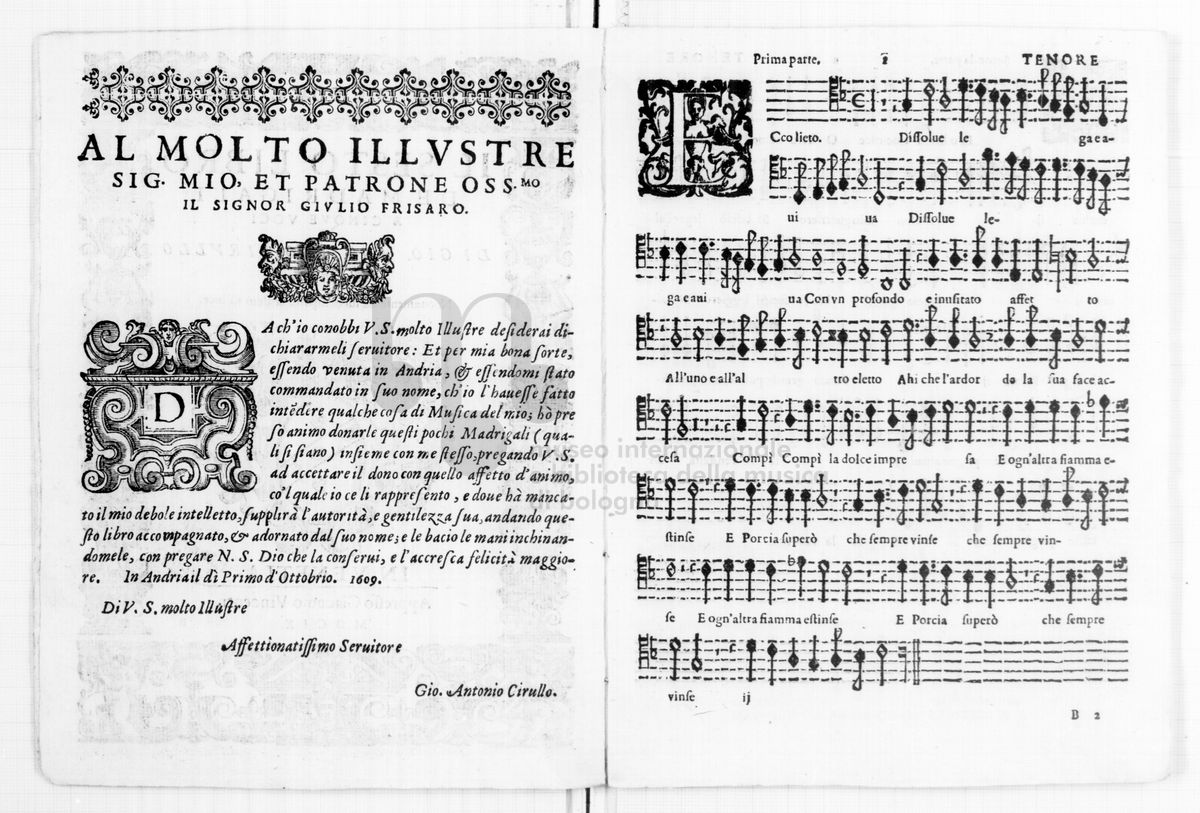 AL MOLTO ILLVSTRE
SIG. MIO, ET PATRONE OSS.MO
IL SIGNOR GIVLIO FRISARO.
DA ch'io conobbi V.S. molto Illustre desiderai di-
chiararmeli seruitore: Et per mia bona sorte,
essendo venuta in Andria, & essendomi stato
commandato in suo nome, ch'io l'hauesse fatto
intēdere qualche cosa di Musica del mio; hò pre
so animo donarle questi pochi Madrigali (qua-
li si siano) insieme con me stesso, pregando V.S.
ad accettare il dono con quello affetto d'animo,
co'l quale io ce li rappresento, e doue hà manca-
to il mio debole intelletto, supplirà l'autorità, e gentilezza sua, andando que-
sto libro accompagnato, & adornato dal suo nome; e le bacio le mani inchinan-
domele, con pregare N. S. Dio che la conserui, e l'accresca felicità maggio-
re. In Andria il dì Primo d'Ottobrio. 1609.
Di V. S. molto Illustre
Affettionatissimo Seruitore
Gio. Antonio Cirullo.
Prima parte. 1 TENORE
ECco lieto. Dissolue le ga e a-
ui ua Dissolue le-
ga e aui ua Con vn profondo e inusitato affet to
All'uno e all'al tro eletto Ahi che l'ardor de la sua face ac-
cesa Compì Compì la dolce impre sa E ogn'altra fiamma e-
stinse E Porcia superò che sempre vinse che sempre vin-
se E ogn'altra fiamma estinse E Porcia superò che sempre
vinse ij
B 2
museo internazionale
e biblioteca della musica
di bologna